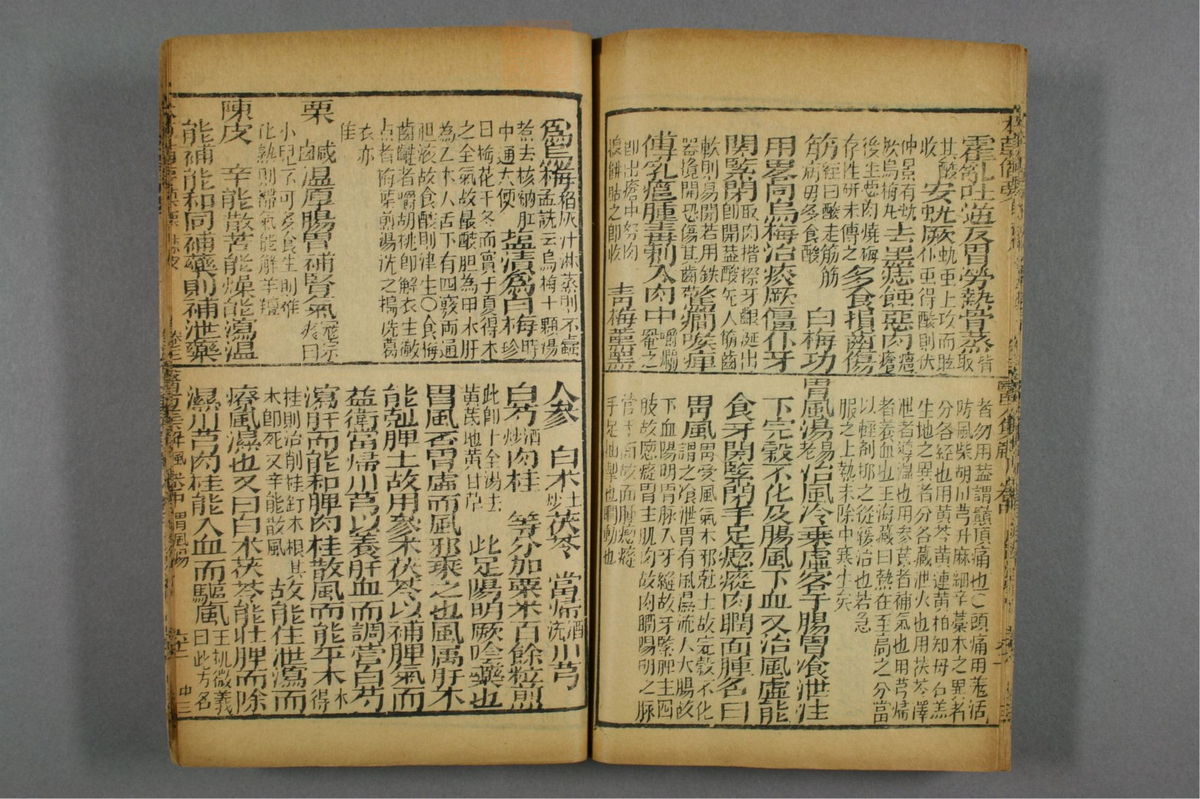 霍亂吐瀉反胃勞熱骨蒸皆取
其酸收 安蚘厥蚘亟上攻而眩仆亟得酸則伏
仲景有蚘厥烏梅丸 去黑痣蝕惡肉瘡瘡
後生惡肉燒梅存性研末傅之 多食損齒傷
筋經曰酸走筋筋病毋多食酸 白梅功
用畧同烏梅治痰厥僵仆牙
關緊閉取肉揩擦牙齦涎出即開葢酸先入筋齒
軟則易開若用鐵器撬開恐傷其齒 驚癎喉痺
傅乳癰腫毒刺入肉中嚼爛罨之
即出瘡中努肉捻餅貼之即收 青梅熏黑
為烏梅稻灰汁淋蒸則不蠹孟詵云烏梅十顆湯
煮去核納肛中通大便 鹽漬為白梅時珍
曰梅花于冬而實于夏得木
之全氣故最酸胆為甲木肝
為乙木人舌下有四竅兩通
胆液故食酸則津生〇食梅
齒齼者嚼胡桃即解衣生黴
點者梅葉煎湯洗之搗洗葛
衣亦佳
栗 鹹溫厚腸胃補腎氣寇宗奭曰
小兒不可多食生則難化熟則滯氣能解羊羶
陳皮 辛能散苦能燥能瀉溫
能補能和同補藥則補泄藥
者勿用葢謂巔頂痛也〇頭痛用羌活
防風柴胡川芎升麻細辛藁本之異者
分各經也用黃芩黃連黃柏知母石羔
生地之異者分各藏泄火也用茯苓澤
泄者導濕也用參芪者補氣也用芎歸
者養血也王海藏曰熱在至高之分當
以輕劑抑之從緩治也若急
服之上熱未除中寒生矣
胃風湯 治風冷乘虛客于腸胃飧泄注
下完穀不化及腸風下血又治風虛能
食牙關緊閉手足瘈瘲肉瞤面腫名曰
胃風胃受風氣木邪尅土故完穀不化
謂之飧泄胃有風濕流入大腸故
下血陽明胃脉入牙縫故牙緊脾主四
肢故瘈瘲胃主肌肉故肉瞤陽明之脉
手足抽掣也瞤動也
人參 白朮土炒 茯苓 當歸酒洗 川芎
白芍酒炒 肉桂 等分加粟米百餘粒煎
此即十全湯去黃芪地黃甘草 此足陽明厥陰藥也
胃風者胃虛而風邪乘之也風属肝木
能尅脾土故用參朮茯苓以補脾氣而
益衛當歸川芎以養肝血而調營白芍
瀉肝而能和脾肉桂散風而能平木木得
桂則治削桂釘木根其木即死又辛能散風 故能住泄瀉而
療風濕也又曰白朮茯苓能壯脾而除
濕川芎肉桂能入血而驅風王執微義曰此方名